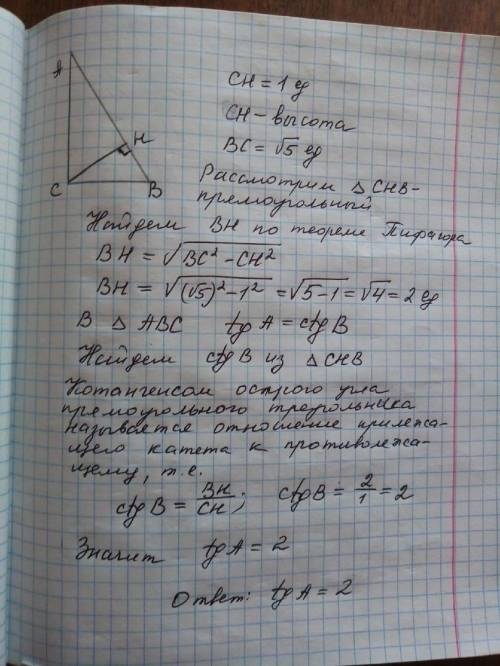 A
H
C
B
CH = 1 ед
CH – высота
BC = √5 ед
Рассмотрим △ CHB –
прямоугольный
Найдем BH по теореме Пифагора
BH = √(BC² – CH²)
BH = √((√5)² – 1²) = √(5 – 1) = √4 = 2 ед
В △ ABC tg A = ctg B
Найдем ctg B из △ CHB
Котангенсом острого угла
прямоугольного треугольника
называется отношение прилежа-
щего катета к противолежа-
щему, т.е.
ctg B = BH/CH; ctg B = 2/1 = 2
Значит tg A = 2
Ответ: tg A = 2